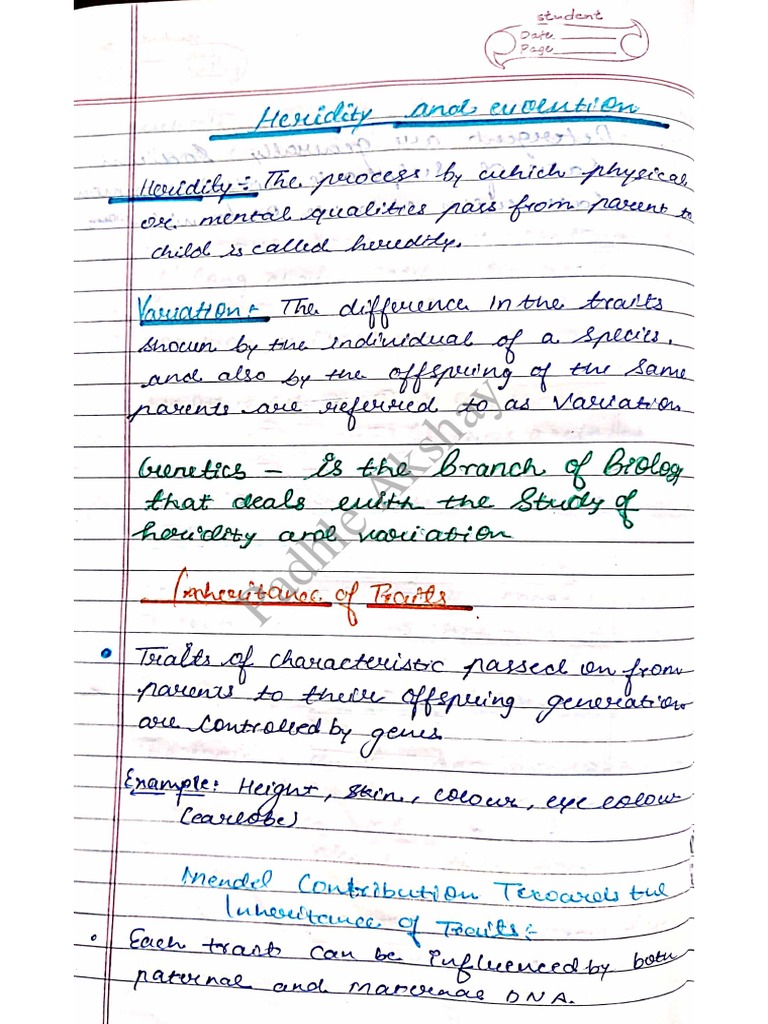 student
Date
Page
Heridity and evolution
Heridity:- The process by which physical
or mental qualities pass from parent to
child is called heredity.
Variation:- The difference in the traits
shown by the individual of a species.
and also by the offspring of the same
parents are referred to as Variation
Genetics - is the Branch of Biology
that deals with the Study of
heridity and variation
Inheritance of Traits
• Traits of characteristic passed on from
parents to their offspring generation
are controlled by genes
Example: Height, skin, colour, eye colour
(earlobe)
Mendel Contribution Towards the
Inheritance of Traits:-
• Each traits can be influenced by both
paternal and maternal DNA.
Padhle Akshay